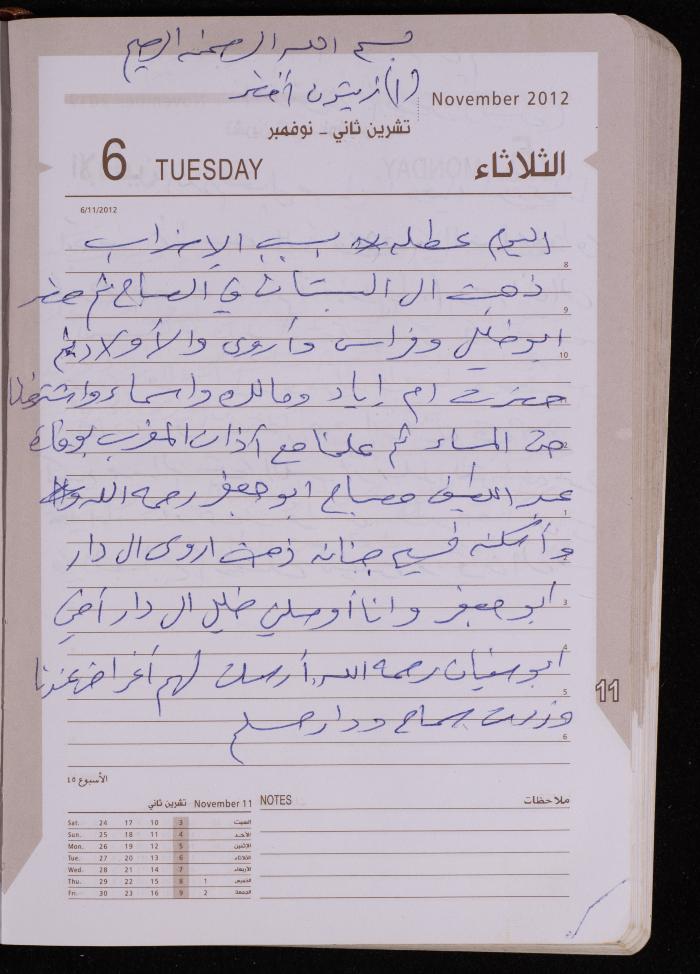 بسم الله الرحمن الرحيم
(١) زيتون أخضر
November 2012
تشرين ثاني - نوفمبر
6 TUESDAY الثلاثاء
6/11/2012
اليوم عطله بسبب الإضراب
8
ذهبت ال البستان في الصباح ثم حضر
9
ابو خليل وفراس وأروى والأولاد ثم
10
حضرت ام إياد ومالك واسماء واشتغلنا
حتى المساء ثم علمنا مع آذان المغرب بوفاة
عبد اللطيف مصباح ابو جعفر رحمه الله
1
وأسكنه فسيح جنانه ذهبت اروى ال دار
ابو جعفر وانا أوصلني خليل ال دار أخي
3
ابو سفيان رحمه الله أرسلت لهم أغراض عندنا
4
5
وزرت سماح ودار مسلم
6
11
الأسبوع ٤٥
November 11 تشرين ثاني
Sat. 24 17 10 3 السبت
Sun. 25 18 11 4 الأحد
Mon. 26 19 12 5 الإثنين
Tue. 27 20 13 6 الثلاثاء
Wed. 28 21 14 7 الأربعاء
Thu. 29 22 15 8 1 الخميس
Fri. 30 23 16 9 2 الجمعة
NOTES ملاحظات